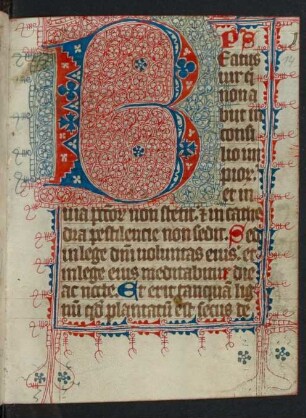 B PS
Eatus
uir q̄
non a
biit in
consi
lio im
pior.
et in
uia pc̄cor non stetit. ⁊ in cathe
dra pestilencie non sedit. Sed
in lege dn̄i uoluntas eius. et
in lege eius meditabitur die
ac nocte. Et erit tanquā lig
nū qd̄ plantatū est secus de